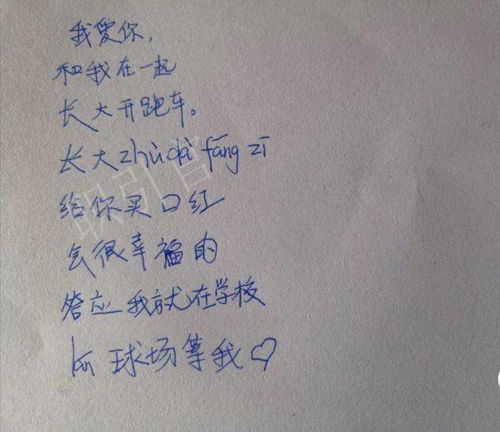 我爱你，
和我在一起
长大开跑车。
长大zhù dà fáng zi
给你买口红
会很幸福的
答应我就在学校
lán球场等我♡